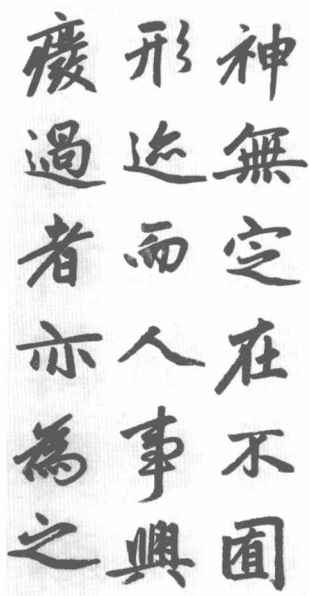 神無定在不囿
形迹而人事興
廢過者亦為之